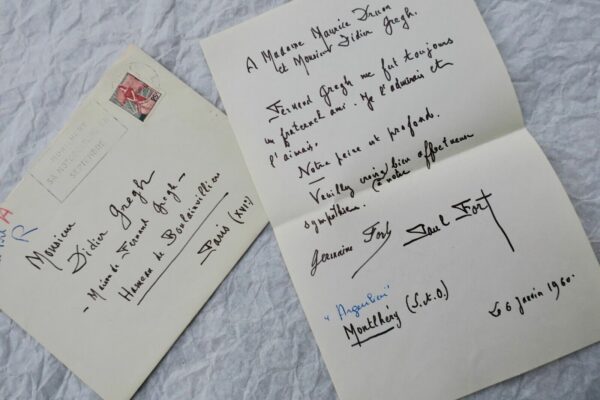 Monsieur
Didier Gregh
- Maison de Fernand Gregh -
Hameau de Boulainvilliers
Paris (XVIe)
A Madame Maurice Druon
et Monsieur Didier Gregh.
Fernand Gregh me fut toujours
un fraternel ami. Je l'admirais et
l'aimais.
Notre peine est profonde.
Veuillez croire bien affectueuse
à notre
sympathie.
Germaine Fort Paul Fort
"Argenlieu"
Montlhéry (S.&.O)
Le 6 Janvier 1960.